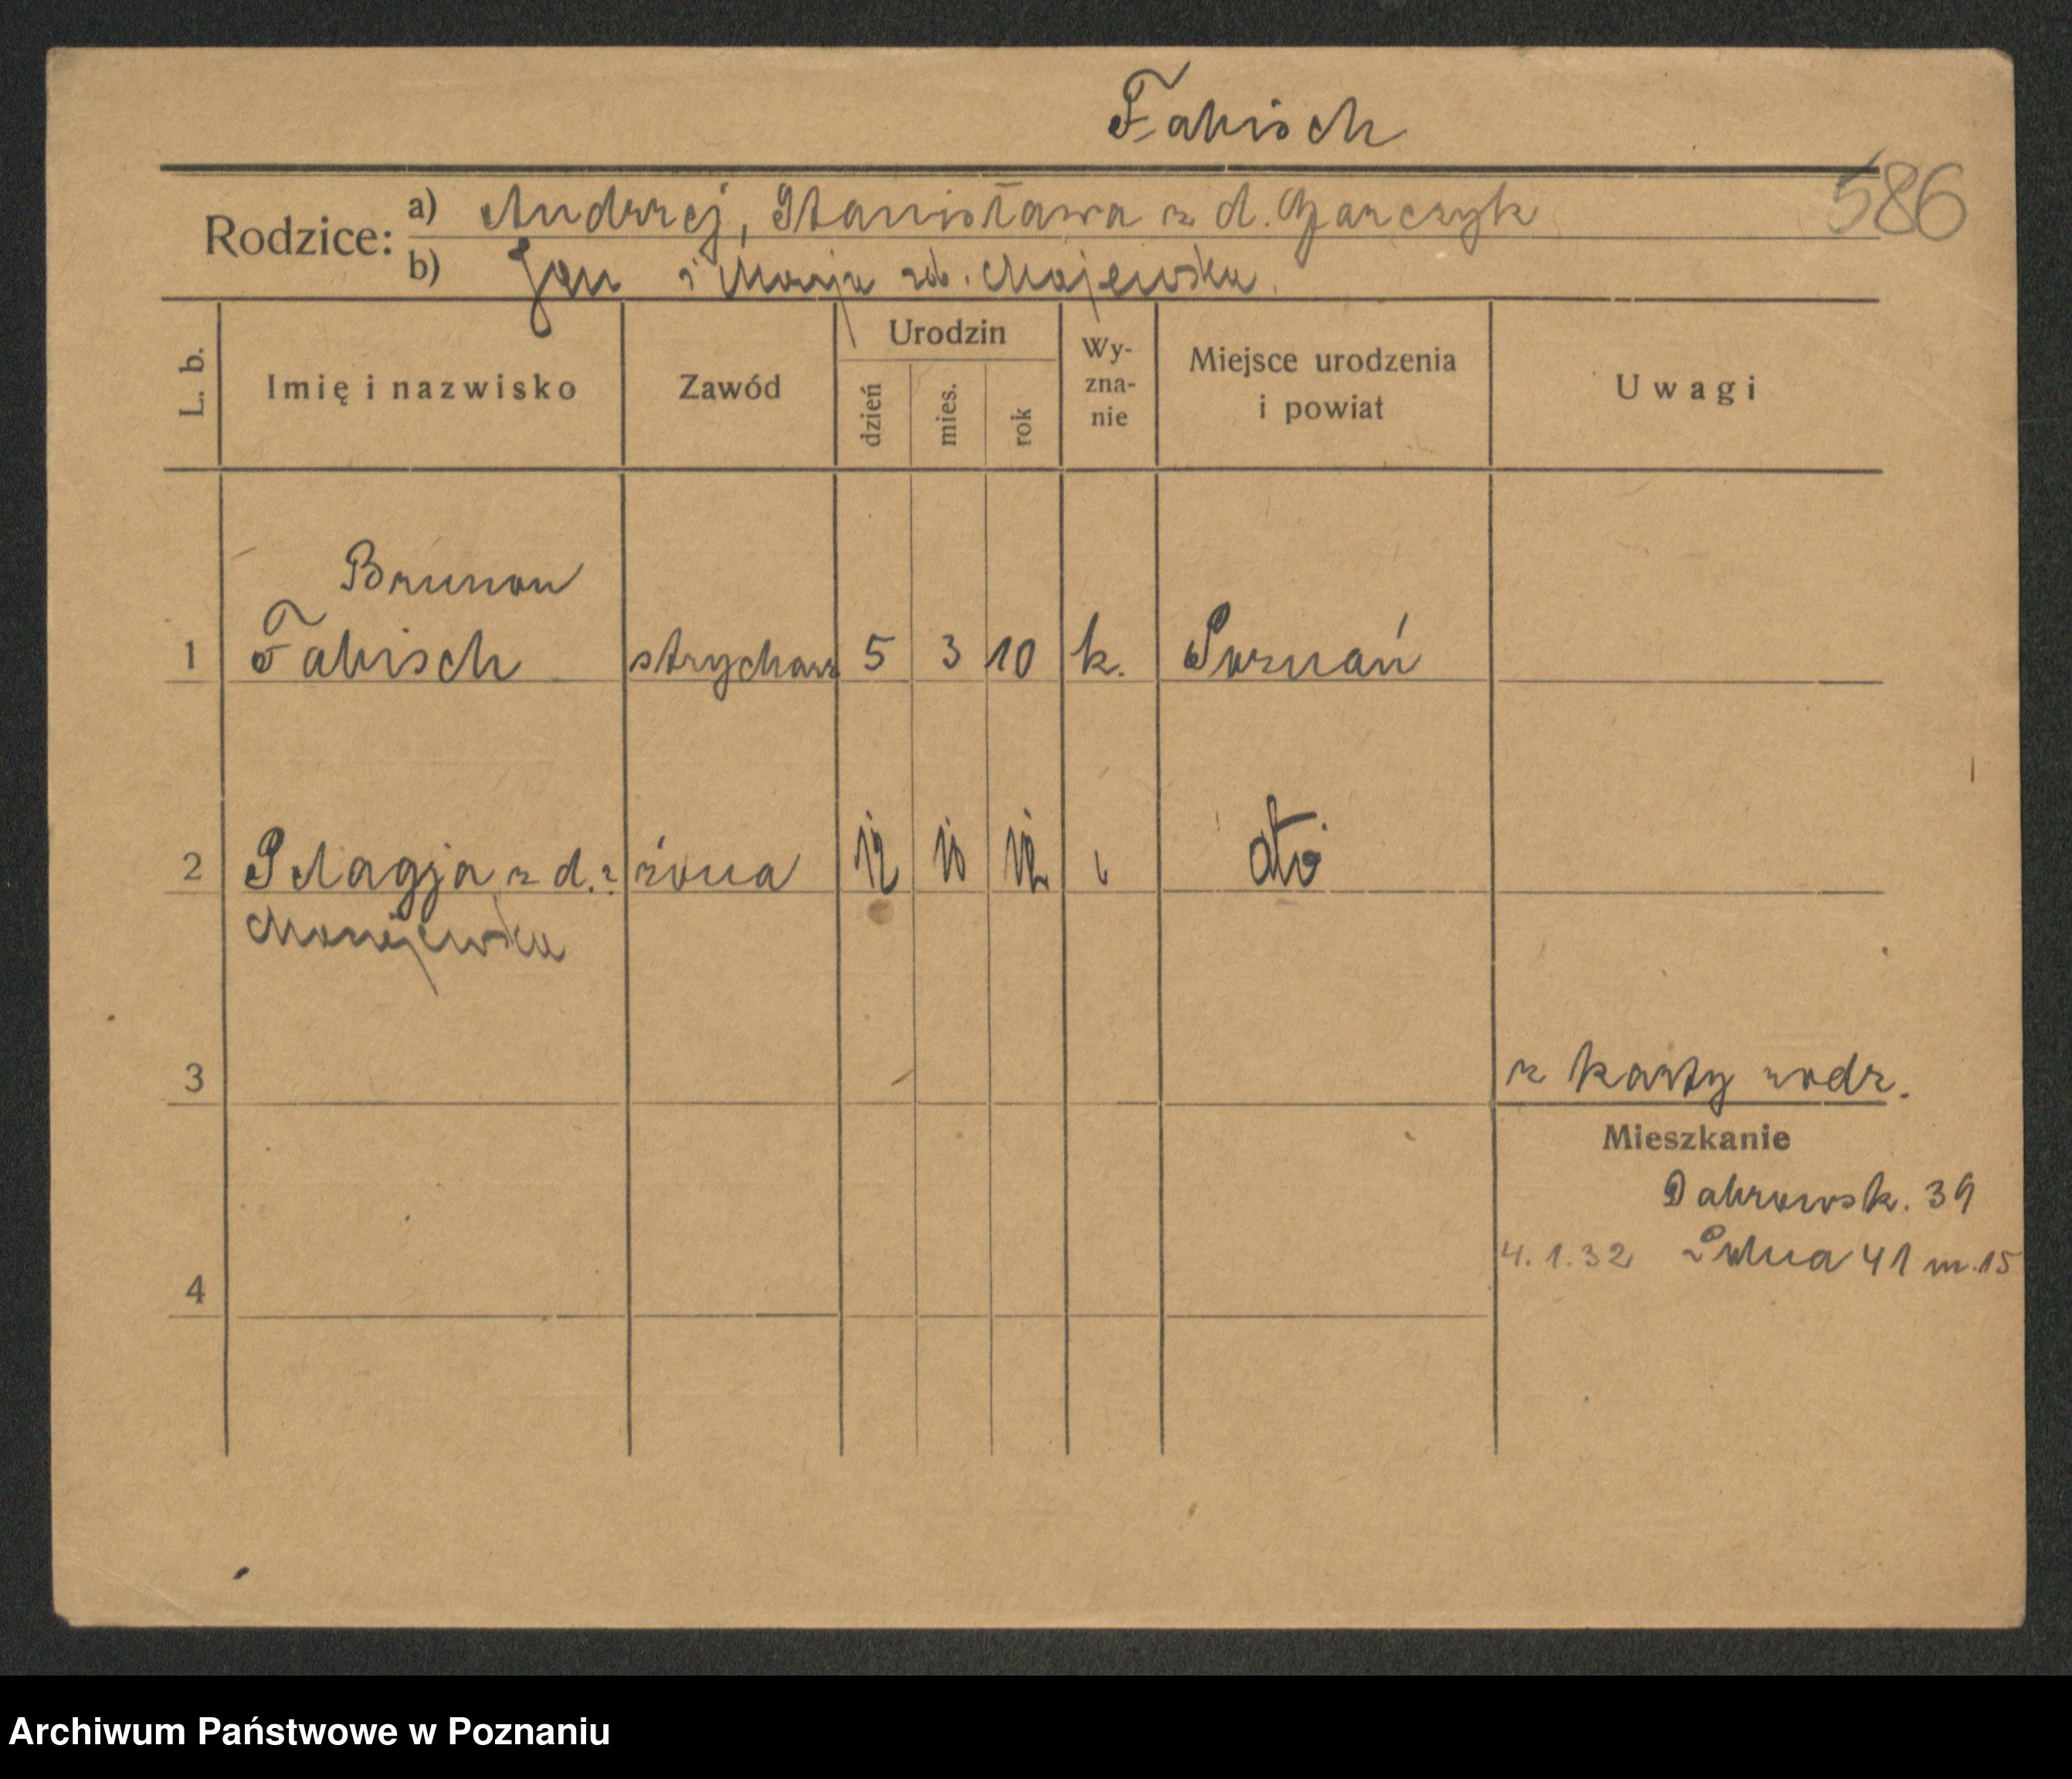 Fabisch
586
Rodzice: a) Andrzej, Stanisława z d.
b) Jan i Marja
L. b.
Imię i nazwisko
Zawód
Urodzin
dzień
mies.
rok
Wy-
zna-
nie
Miejsce urodzenia
i powiat
Uwagi
Brunon
1 Fabisch strycharz 5 3 10 k. Poznań
2 Pelagja z d. żona 12 10 12 dto
3 z karty rodz.
Mieszkanie
Dabrowsk. 39
4.1.32 Polna 41 m. 15
4
Archiwum Państwowe w Poznaniu